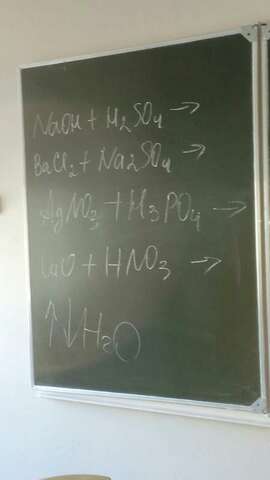 NaOH + H₂SO₄ →
BaCl₂ + Na₂SO₄ →
AgNO₃ + H₃PO₄ →
CuO + HNO₃ →
↑↓ H₂O